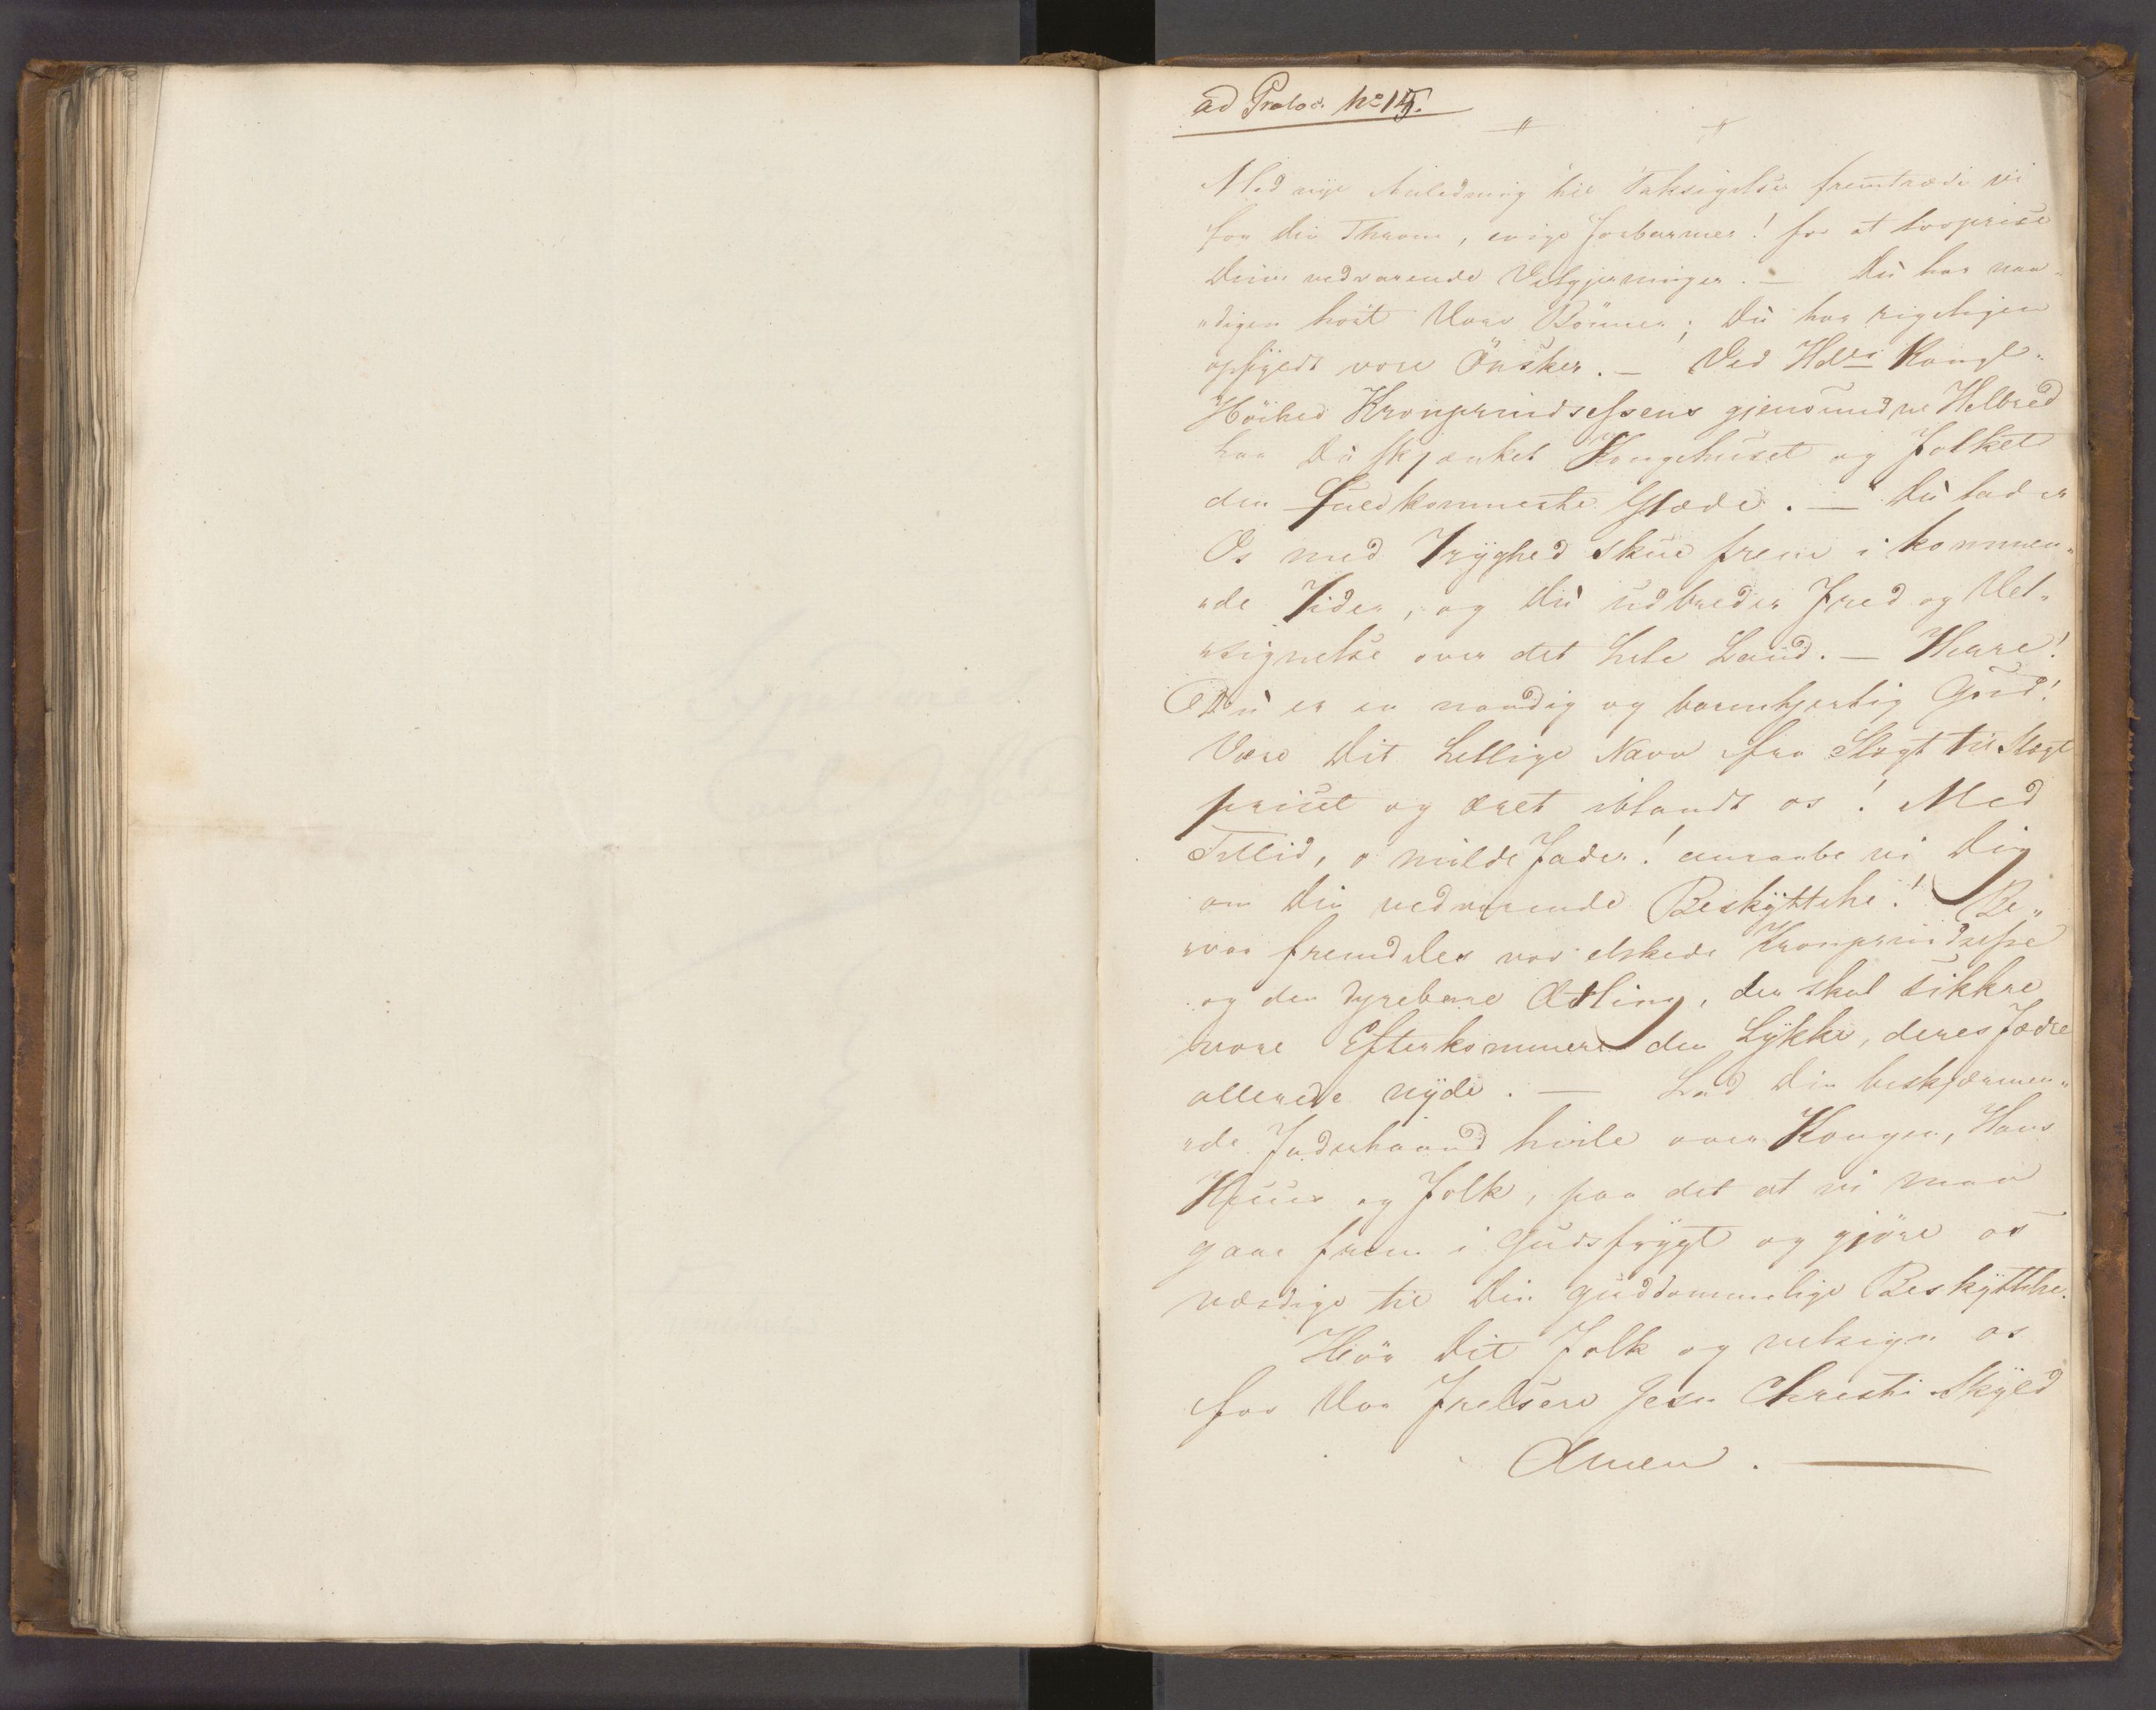 ad Protoc. No 15.
Med nye Anledning til Taksigelse fremtræde vi
for din Throne, evige Forbarmer! for at lovprise
Dine vedvarende Velgjerninger. — Du har naa„
„digen hört Vore Bönner; Du har rigeligen
opfÿldt vore Önsker. — Ved Hdes Kongl.
Höihed Kronprindsessens gjenvundne Helbred
har Du skjænket Kongehuset og Folket
den fuldkomneste Glæde. — Du lader
Os med Trÿghed skue frem i kommen„
„de Tider, og Du udbreder Fred og Vel„
„signelse over det hele Land. — Herre!
Du er en naadig og barmhjertig Gud!
Være Dit hellige Navn fra Slægt til Slægt
priset og æret iblandt os! Med
Tillid, o milde Fader! anraabe vi Dig
om Din vedvarende Beskÿttelse! Be„
„var fremdeles vor elskede Kronprindsesse
og den dyrebare Ætling, der skal sikkre
vore Efterkommere den Lÿkke, deres Fædre
allerede nÿde. — Lad Din beskjærmen„
„de Faderhaand hvile over Kongen, Hans
Huus og Folk, paa det at vi maa
gaae frem i Gudsfrÿgt og gjöre os
værdige til Din guddommelige Beskÿttelse.
Hör Dit Folk og velsign os
for Vor Frelsere Jesu Christi Skÿld
Amen. —